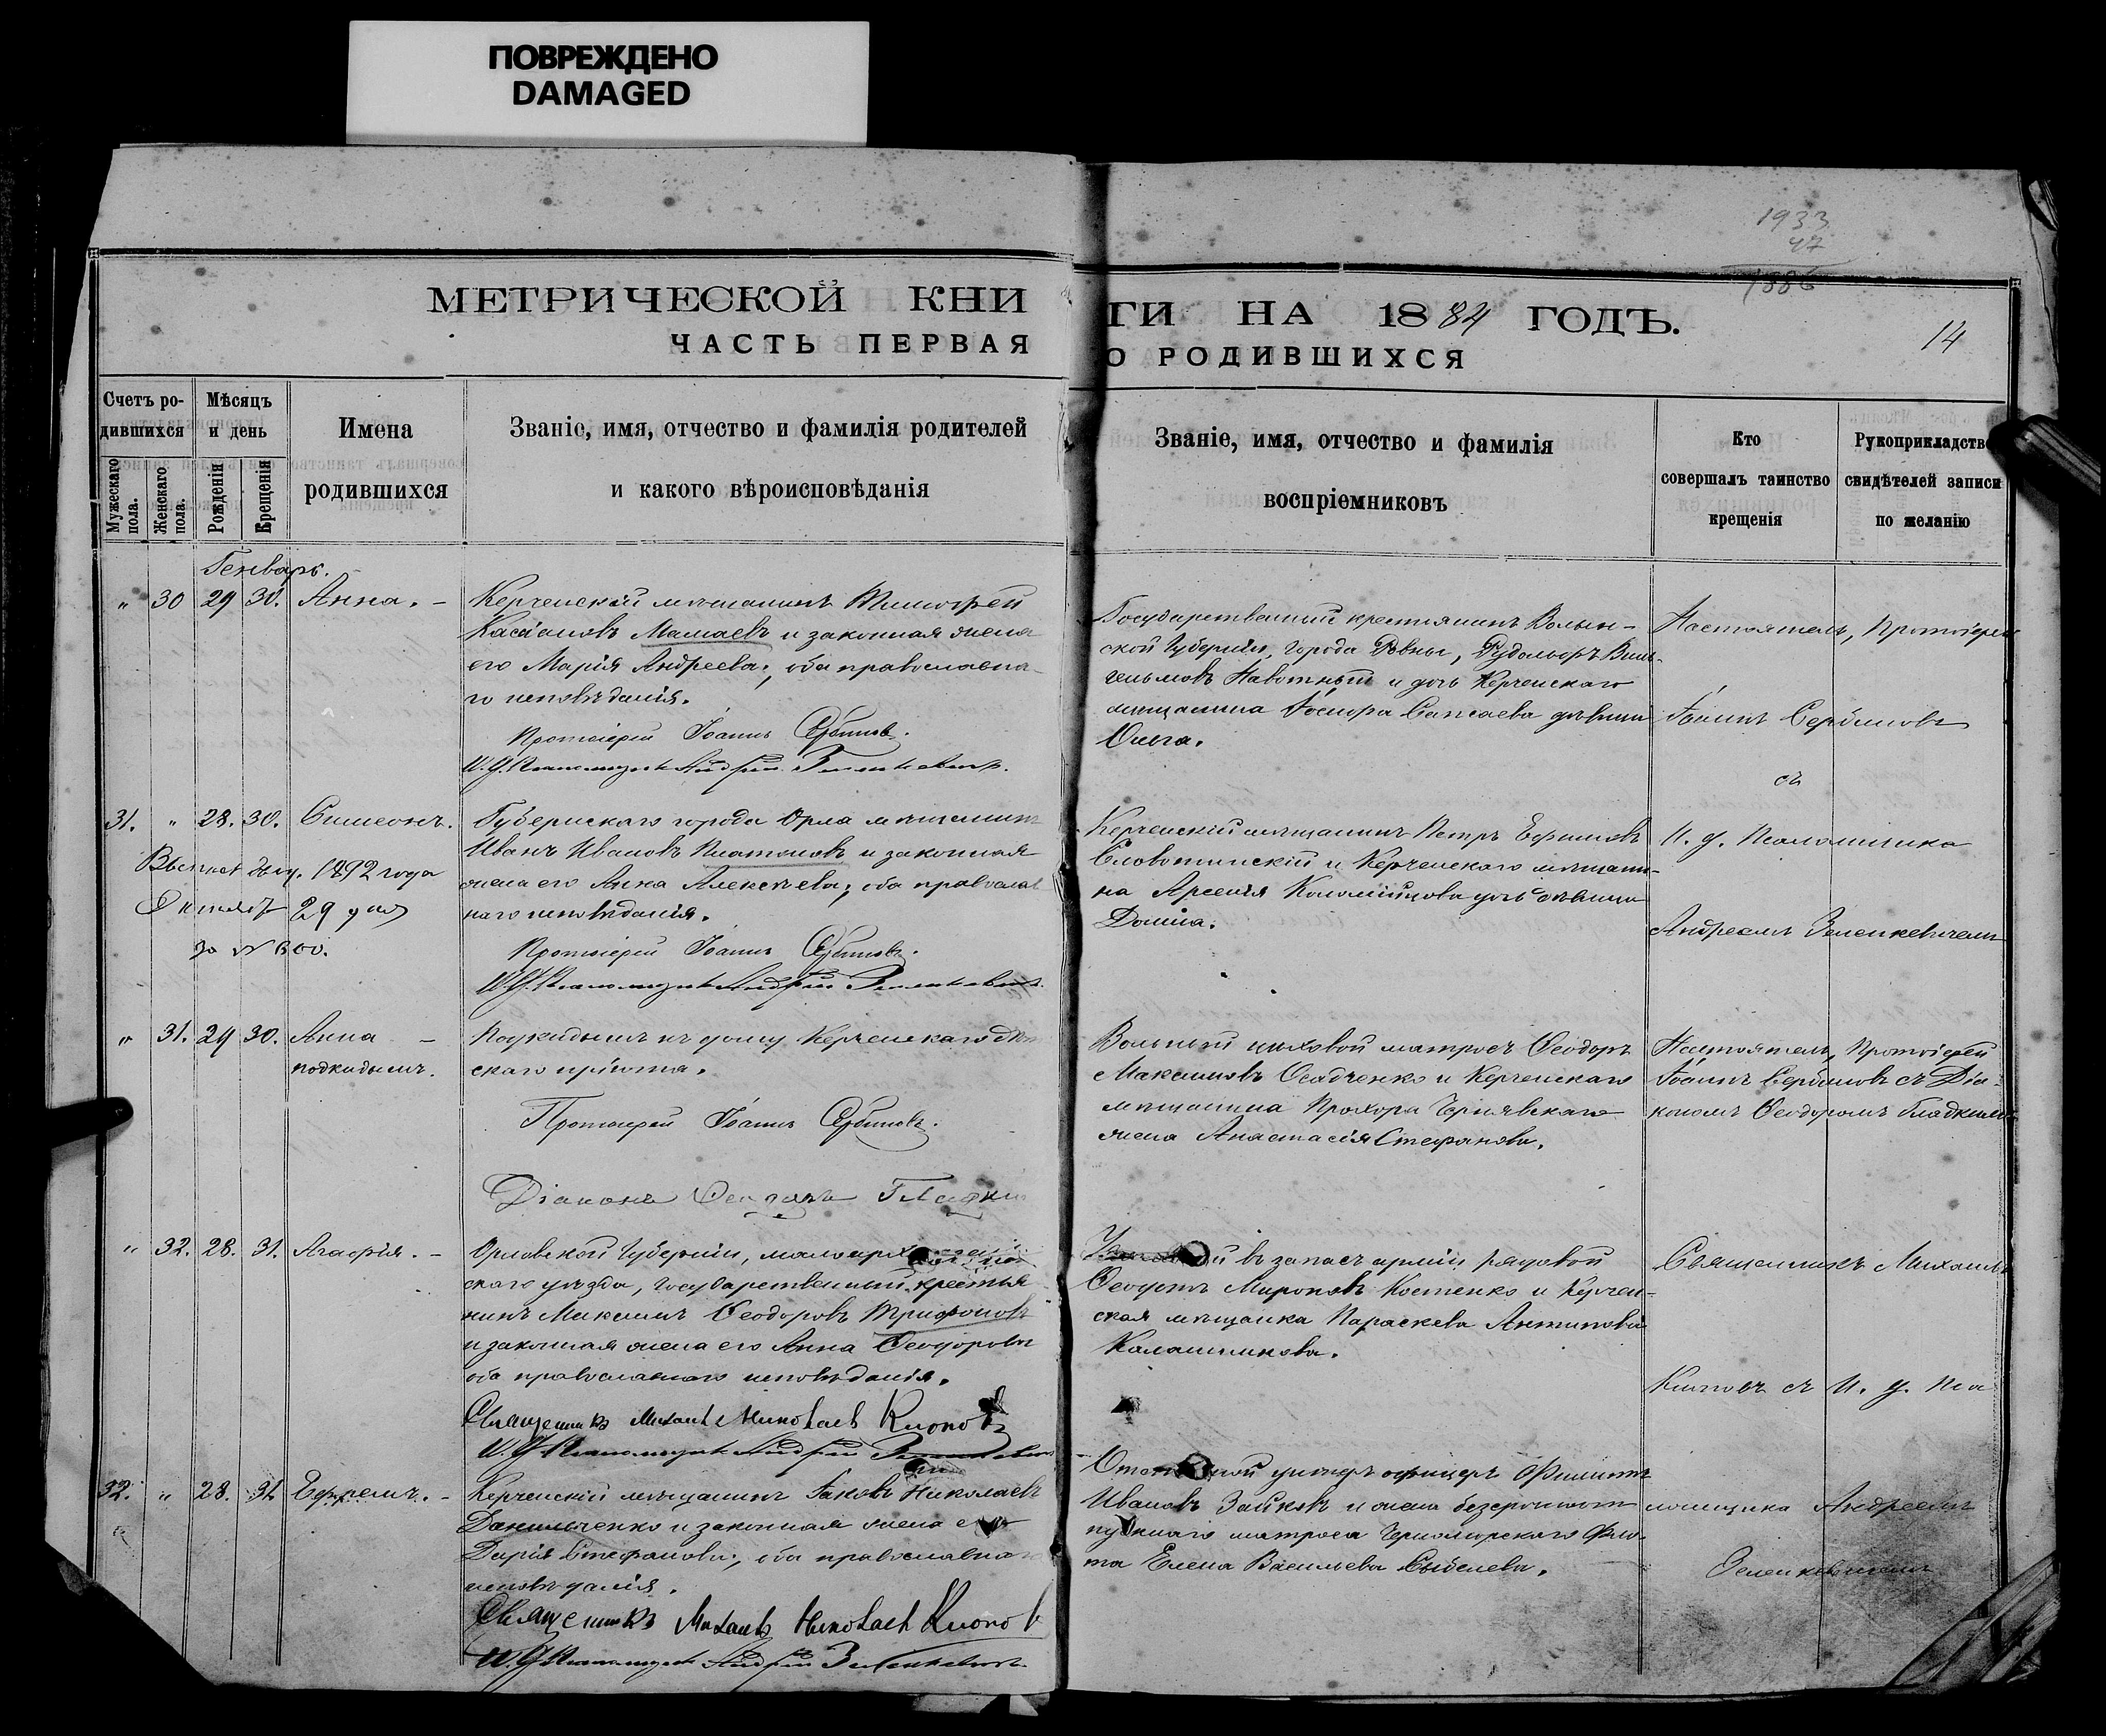 ПОВРЕЖДЕНО
DAMAGED
1933
47
1886
МЕТРИЧЕСКОЙ КНИГИ НА 1884 ГОДЪ.
14
ЧАСТЬ ПЕРВАЯ О РОДИВШИХСЯ
Счетъ родившихся
Мужескаго пола.
Женскаго пола.
Мѣсяцъ и день
Рожденія
Крещенія
Имена родившихся
Званіе, имя, отчество и фамилія родителей
и какого вѣроисповѣданія
Званіе, имя, отчество и фамилія
воспріемниковъ
Кто
совершалъ таинство
крещенія
Рукоприкладство
свидѣтелей записи
по желанію
Генварь.
" 30 29 30. Анна. –
Керченскій мѣщанинъ Тимофей
Касіановъ Мамаевъ и законная жена
его Марія Андреева, оба православна-
го исповѣданія.
Протоіерей Іоаннъ Сербиновъ.
И. д. Псаломщика Андрей Зеленкевичъ.
Государственный крестьянинъ Волын-
ской Губерніи, города Ровны, Рудольфъ Виль-
гельмовъ Навотный и дочь Керченскаго
мѣщанина дѣвица
Ольга.
Настоятель, Протоіерей
Іоаннъ Сербиновъ
съ
31. " 28. 30. Симеонъ.
года 1892
Октября 29 дня
за №
Губернскаго города Орла мѣщанинъ
Иванъ Ивановъ Платоновъ и законная
жена его Анна Алексѣева, оба православ
наго исповѣданія.
Протоіерей Іоаннъ Сербиновъ.
И. д. Псаломщика Андрей Зеленкевичъ.
Керченскій мѣщанинъ Петръ Ефимовъ
Словотинскій и Керченскаго мѣщани-
на Арсенія Коломійцова дочь дѣвица
Домна.
И. д. Псаломщика
Андреемъ Зеленкевичемъ
" 31. 29 30. Анна –
подкидышъ.
Подкидышъ къ дому Керченскаго Дѣт
скаго пріюта.
Протоіерей Іоаннъ Сербиновъ.
Діаконъ Ѳеодоръ Гладкій
Вольный цеховой матросъ Ѳеодоръ
Максимовъ Осадченко и Керченскаго
мѣщанина Прохора Чернявскаго
жена Анастасія Стефанова.
Настоятель, Протоіерей
Іоаннъ Сербиновъ съ Діа-
кономъ Ѳеодоромъ Гладкимъ
" 32. 28. 31. Агафія. –
Орловской Губерніи, малоархангель
скаго уѣзда, государственный крестья
нинъ Максимъ Ѳеодоровъ Трифоновъ
и законная жена его Анна Ѳеодорова
оба православнаго исповѣданія.
Священникъ Михаилъ Николаевъ Кионовъ
И. д. Псаломщика Андрей Зеленкевичъ
й въ запасъ арміи рядовой
Ѳеодотъ Мироновъ Костенко и Керчен-
ская мѣщанка Параскева Антипова
Калашникова.
Священникъ Михаилъ
съ И. д. Пса
32. " 28. 31. Ефремъ. –
Керченскій мѣщанинъ Іаковъ Николаевъ
Данильченко и законная жена его
Дарія Стефанова, оба православнаго
исповѣданія.
Священникъ Михаилъ Николаевъ Кионовъ
И. д. Псаломщика Андрей Зеленкевичъ
унтеръ офицеръ Филиппъ
Ивановъ Зайковъ и жена безсрочноот
пускнаго матроса Черноморскаго Фло-
та Елена Васильева
ломщика Андреемъ
Зеленкевичемъ